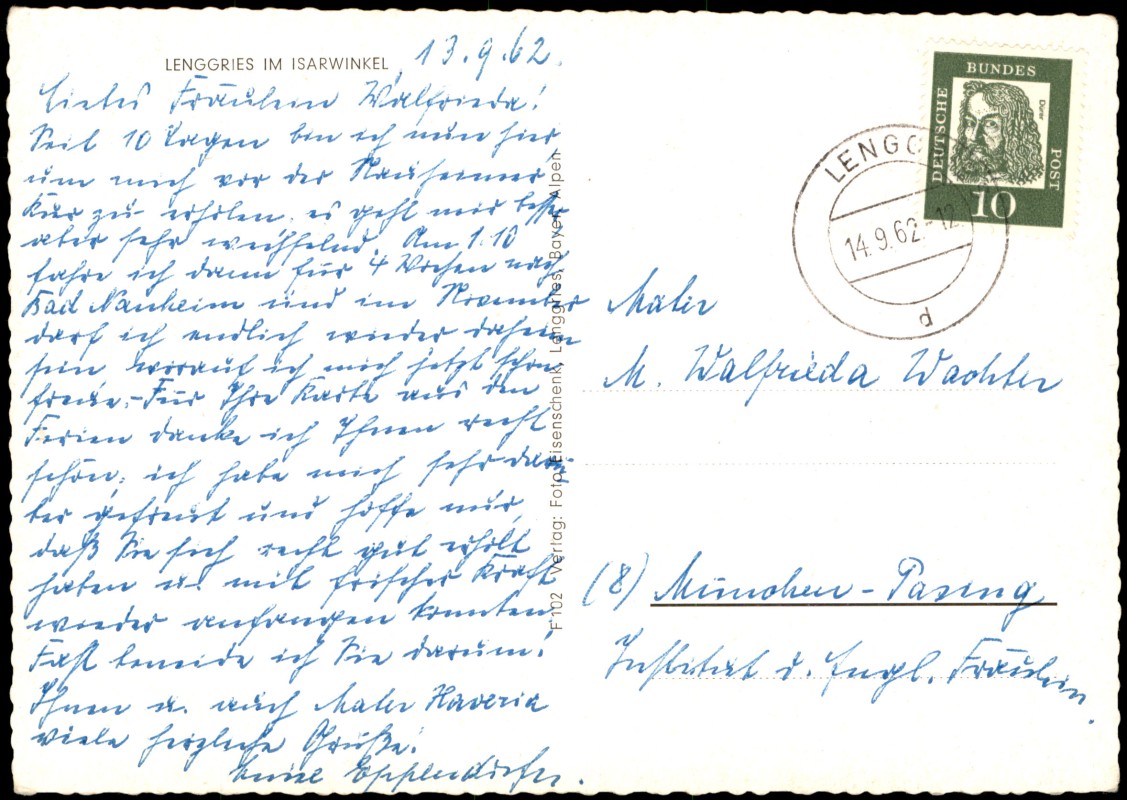 LENGGRIES IM ISARWINKEL
13.9.62.
Liebes Fräulein Walfrieda!
Seit 10 Tagen bin ich nun hier
um mich vor der Nauheimer
Kur zu erholen. es geht mir besser
aber sehr wechselnd. Am 1.10
fahre ich dann für 4 Wochen nach
Bad Nauheim und im November
darf ich endlich wieder daheim
sein worauf ich mich jetzt schon
freue.- Für Ihre Karte aus den
Ferien danke ich Ihnen recht
schön, ich habe mich sehr darü-
ber gefreut und hoffe nur,
daß Sie sich recht gut erholt
haben u. mit frischer Kraft
wieder anfangen konnten.
Fast beneide ich Sie darum.
Ihnen u. auch Mater Xaveria
viele herzliche Grüße!
F 102 Verlag: Foto Eisenschenk, Lenggries, Bayer. Alpen
DEUTSCHE
BUNDES
POST
Dürer
10
LENGG
14.9.62.-12
d
Mater
M. Walfrieda Wachter
(8) München-Pasing
Institut d. Engl. Fräulein.